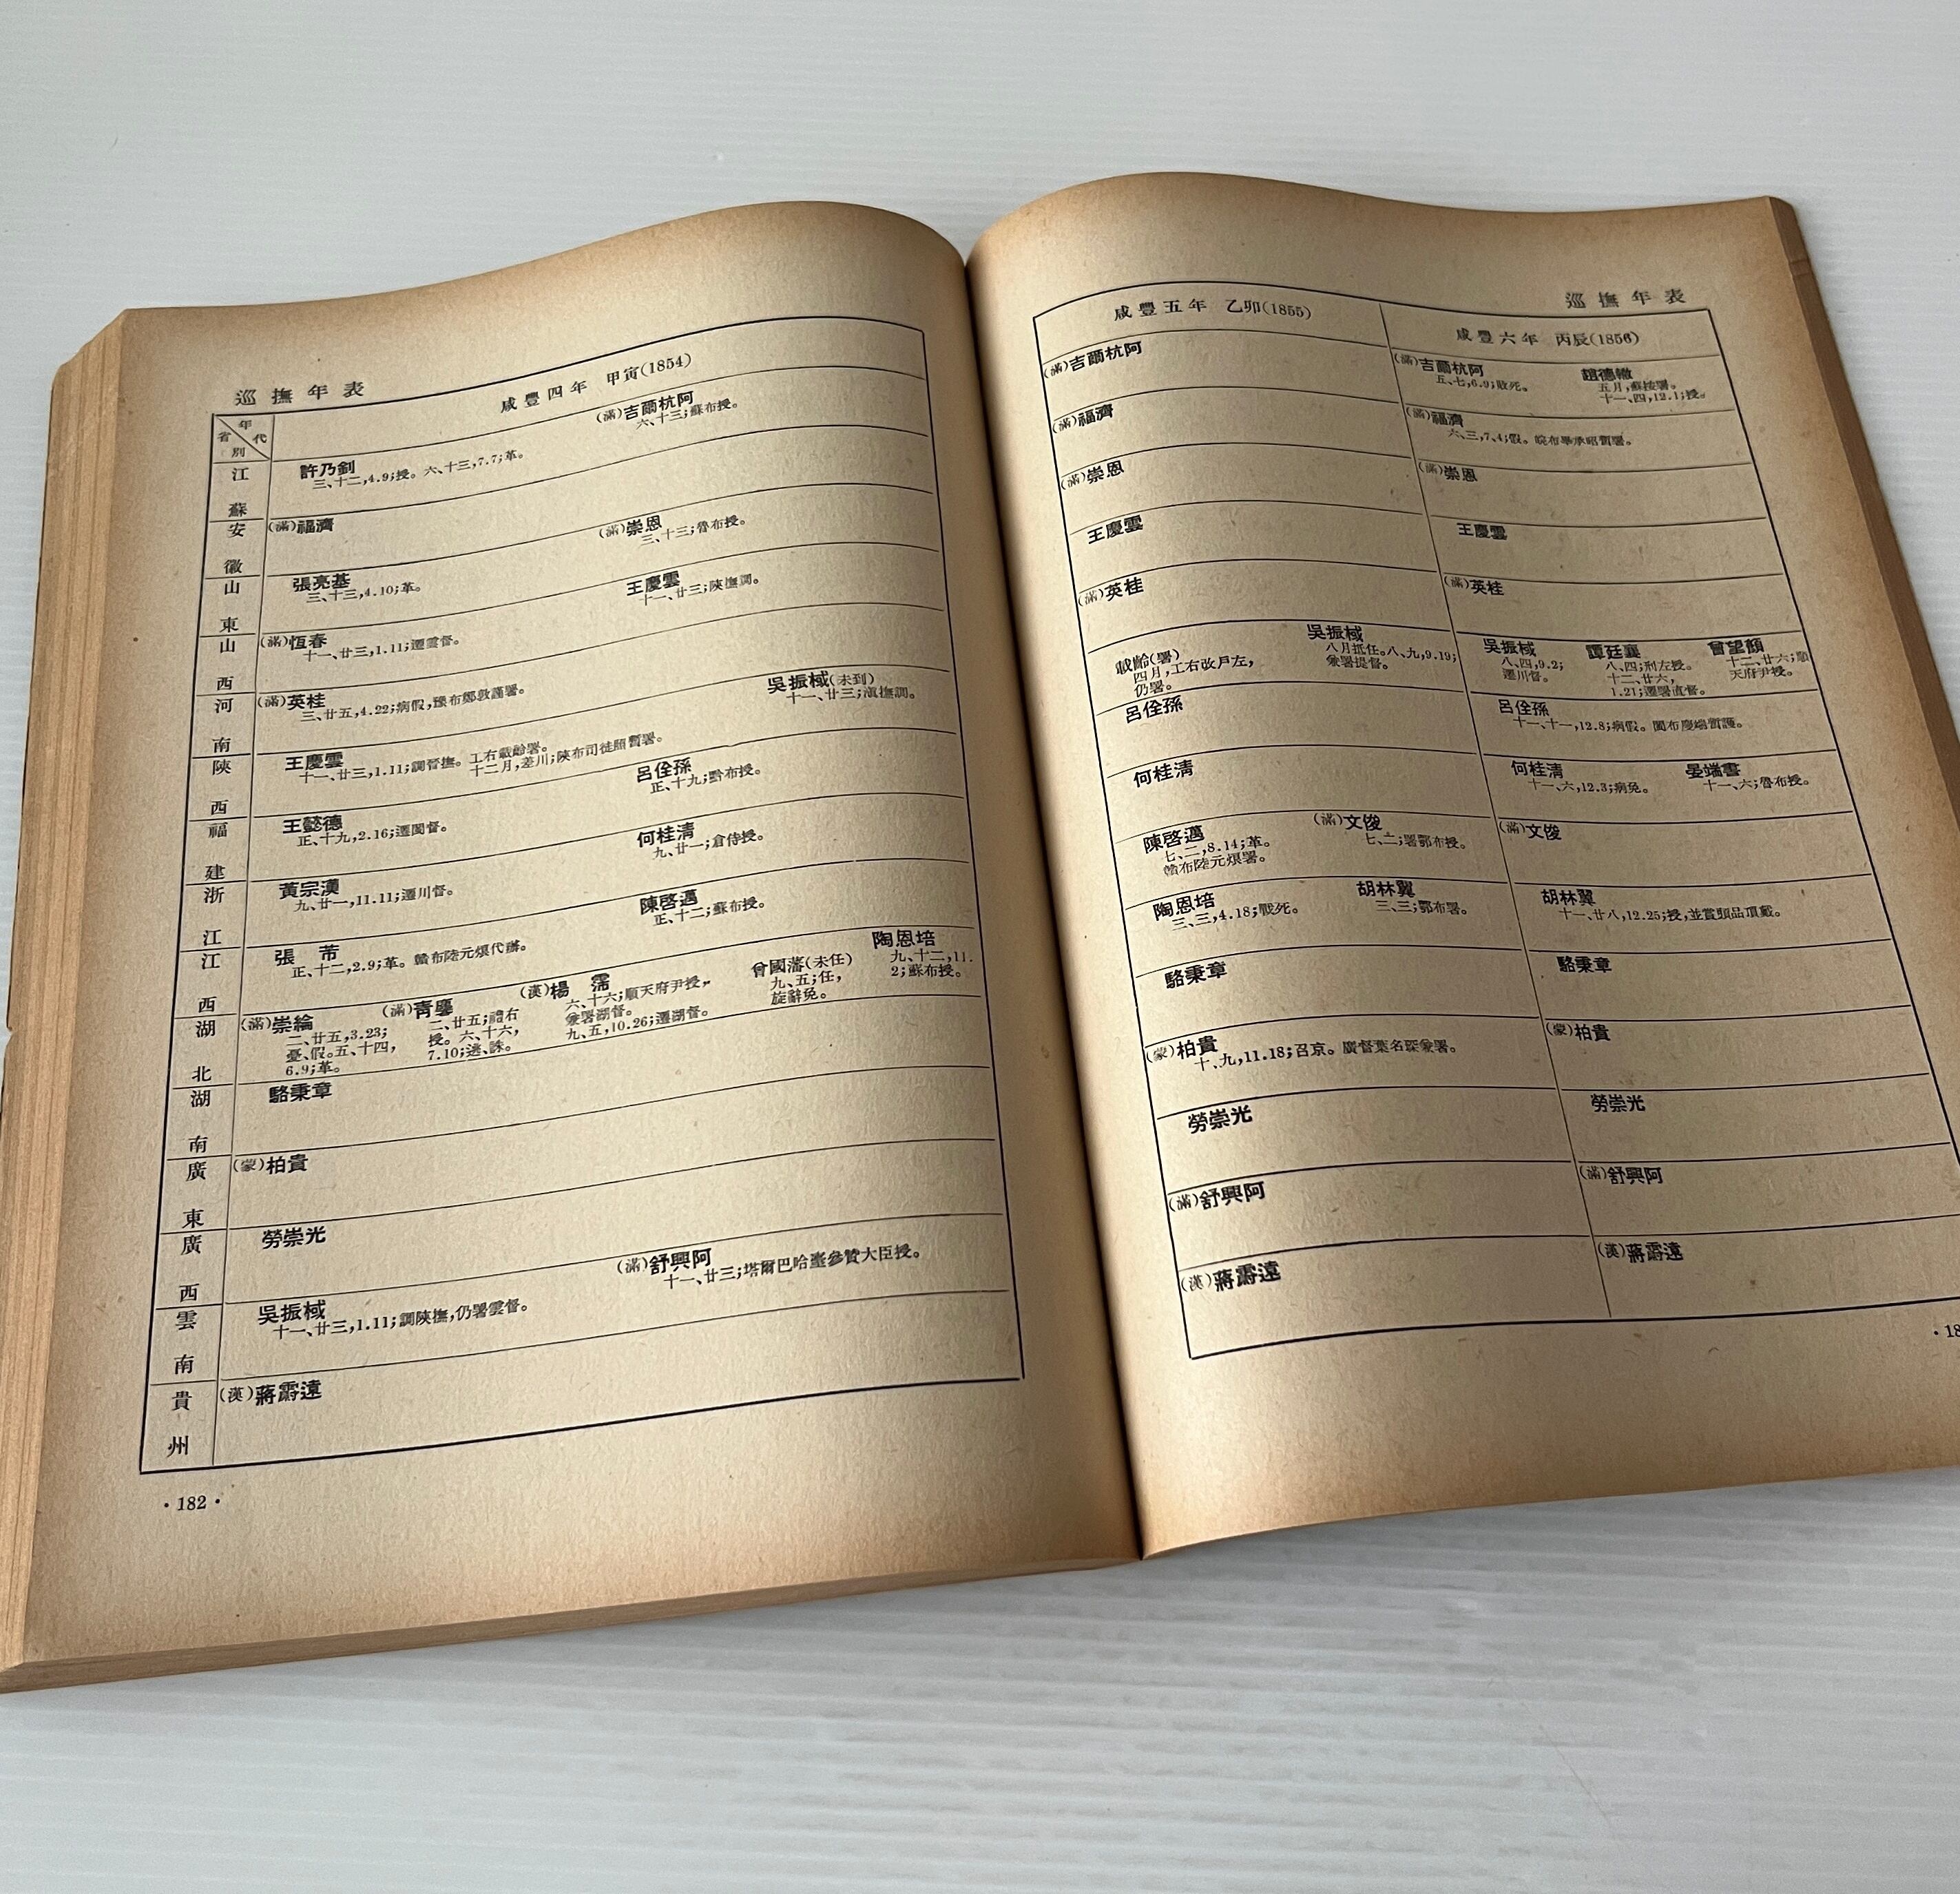 巡撫年表
咸豐四年 甲寅(1854)
年代
省別
江蘇
許乃釗
三、十二,4.9;授。六、十三,7.7;革。
(滿)吉爾杭阿
六、十三;蘇布授。
安徽
(滿)福濟
山東
張亮基
三、十三,4.10;革。
(滿)崇恩
三、十三;魯布授。
山西
(滿)恆春
十一、廿三,1.11;遷雲督。
王慶雲
十一、廿三;陝撫調。
河南
(滿)英桂
三、廿五,4.22;病假,豫布鄭敦謹署。
陝西
王慶雲
十一、廿三,1.11;調晉撫。工右載齡署。
十二月,差川;陝布司徒照暫署。
吳振棫(未到)
十一、廿三;滇撫調。
福建
王懿德
正、十九,2.16;遷閩督。
呂佺孫
正、十九;黔布授。
浙江
黃宗漢
九、廿一,11.11;遷川督。
何桂清
九、廿一;倉侍授。
江西
張 芾
正、十二,2.9;革。贛布陸元烺代辦。
陳啓邁
正、十二;蘇布授。
湖北
(滿)崇綸
二、廿五,3.23;
憂、假。五、十四,
6.9;革。
(滿)青麐
二、廿五;禮右
授。六、十六,
7.10;逃、誅。
(漢)楊 霈
六、十六;順天府尹授,
兼署湖督。
九、五,10.26;遷湖督。
曾國藩(未任)
九、五;任,
旋辭免。
陶恩培
九、十二,11.
2;蘇布授。
湖南
駱秉章
廣東
(蒙)柏貴
廣西
勞崇光
雲南
吳振棫
十一、廿三,1.11;調陝撫,仍署雲督。
(滿)舒興阿
十一、廿三;塔爾巴哈臺參贊大臣授。
貴州
(漢)蔣霨遠
·182·
巡撫年表
咸豐五年 乙卯(1855)
(滿)吉爾杭阿
(滿)福濟
(滿)崇恩
王慶雲
(滿)英桂
載齡(署)
四月,工右改戶左,
仍署。
吳振棫
八月抵任。八、九,9.19;
兼署提督。
呂佺孫
何桂清
陳啓邁
七、二,8.14;革。
贛布陸元烺署。
(滿)文俊
七、二;署鄂布授。
陶恩培
三、三,4.18;戰死。
胡林翼
三、三;鄂布署。
駱秉章
(蒙)柏貴
十、九,11.18;召京。廣督葉名琛兼署。
勞崇光
(滿)舒興阿
(漢)蔣霨遠
咸豐六年 丙辰(1856)
(滿)吉爾杭阿
五、七,6.9;敗死。
趙德轍
五月,蘇按署。
十一、四,12.1;授。
(滿)福濟
六、三,7.4;假。皖布畢承昭暫署。
(滿)崇恩
王慶雲
(滿)英桂
吳振棫
八、四,9.2;
遷川督。
譚廷襄
八、四;刑左授。
十二、廿六,
1.21;遷署直督。
曾望顏
十二、廿六;順
天府尹授。
呂佺孫
十一、十一,12.8;病假。閩布慶端暫護。
何桂清
十一、六,12.3;病免。
晏端書
十一、六;魯布授。
(滿)文俊
胡林翼
十一、廿八,12.25;授,並賞頭品頂戴。
駱秉章
(蒙)柏貴
勞崇光
(滿)舒興阿
(漢)蔣霨遠